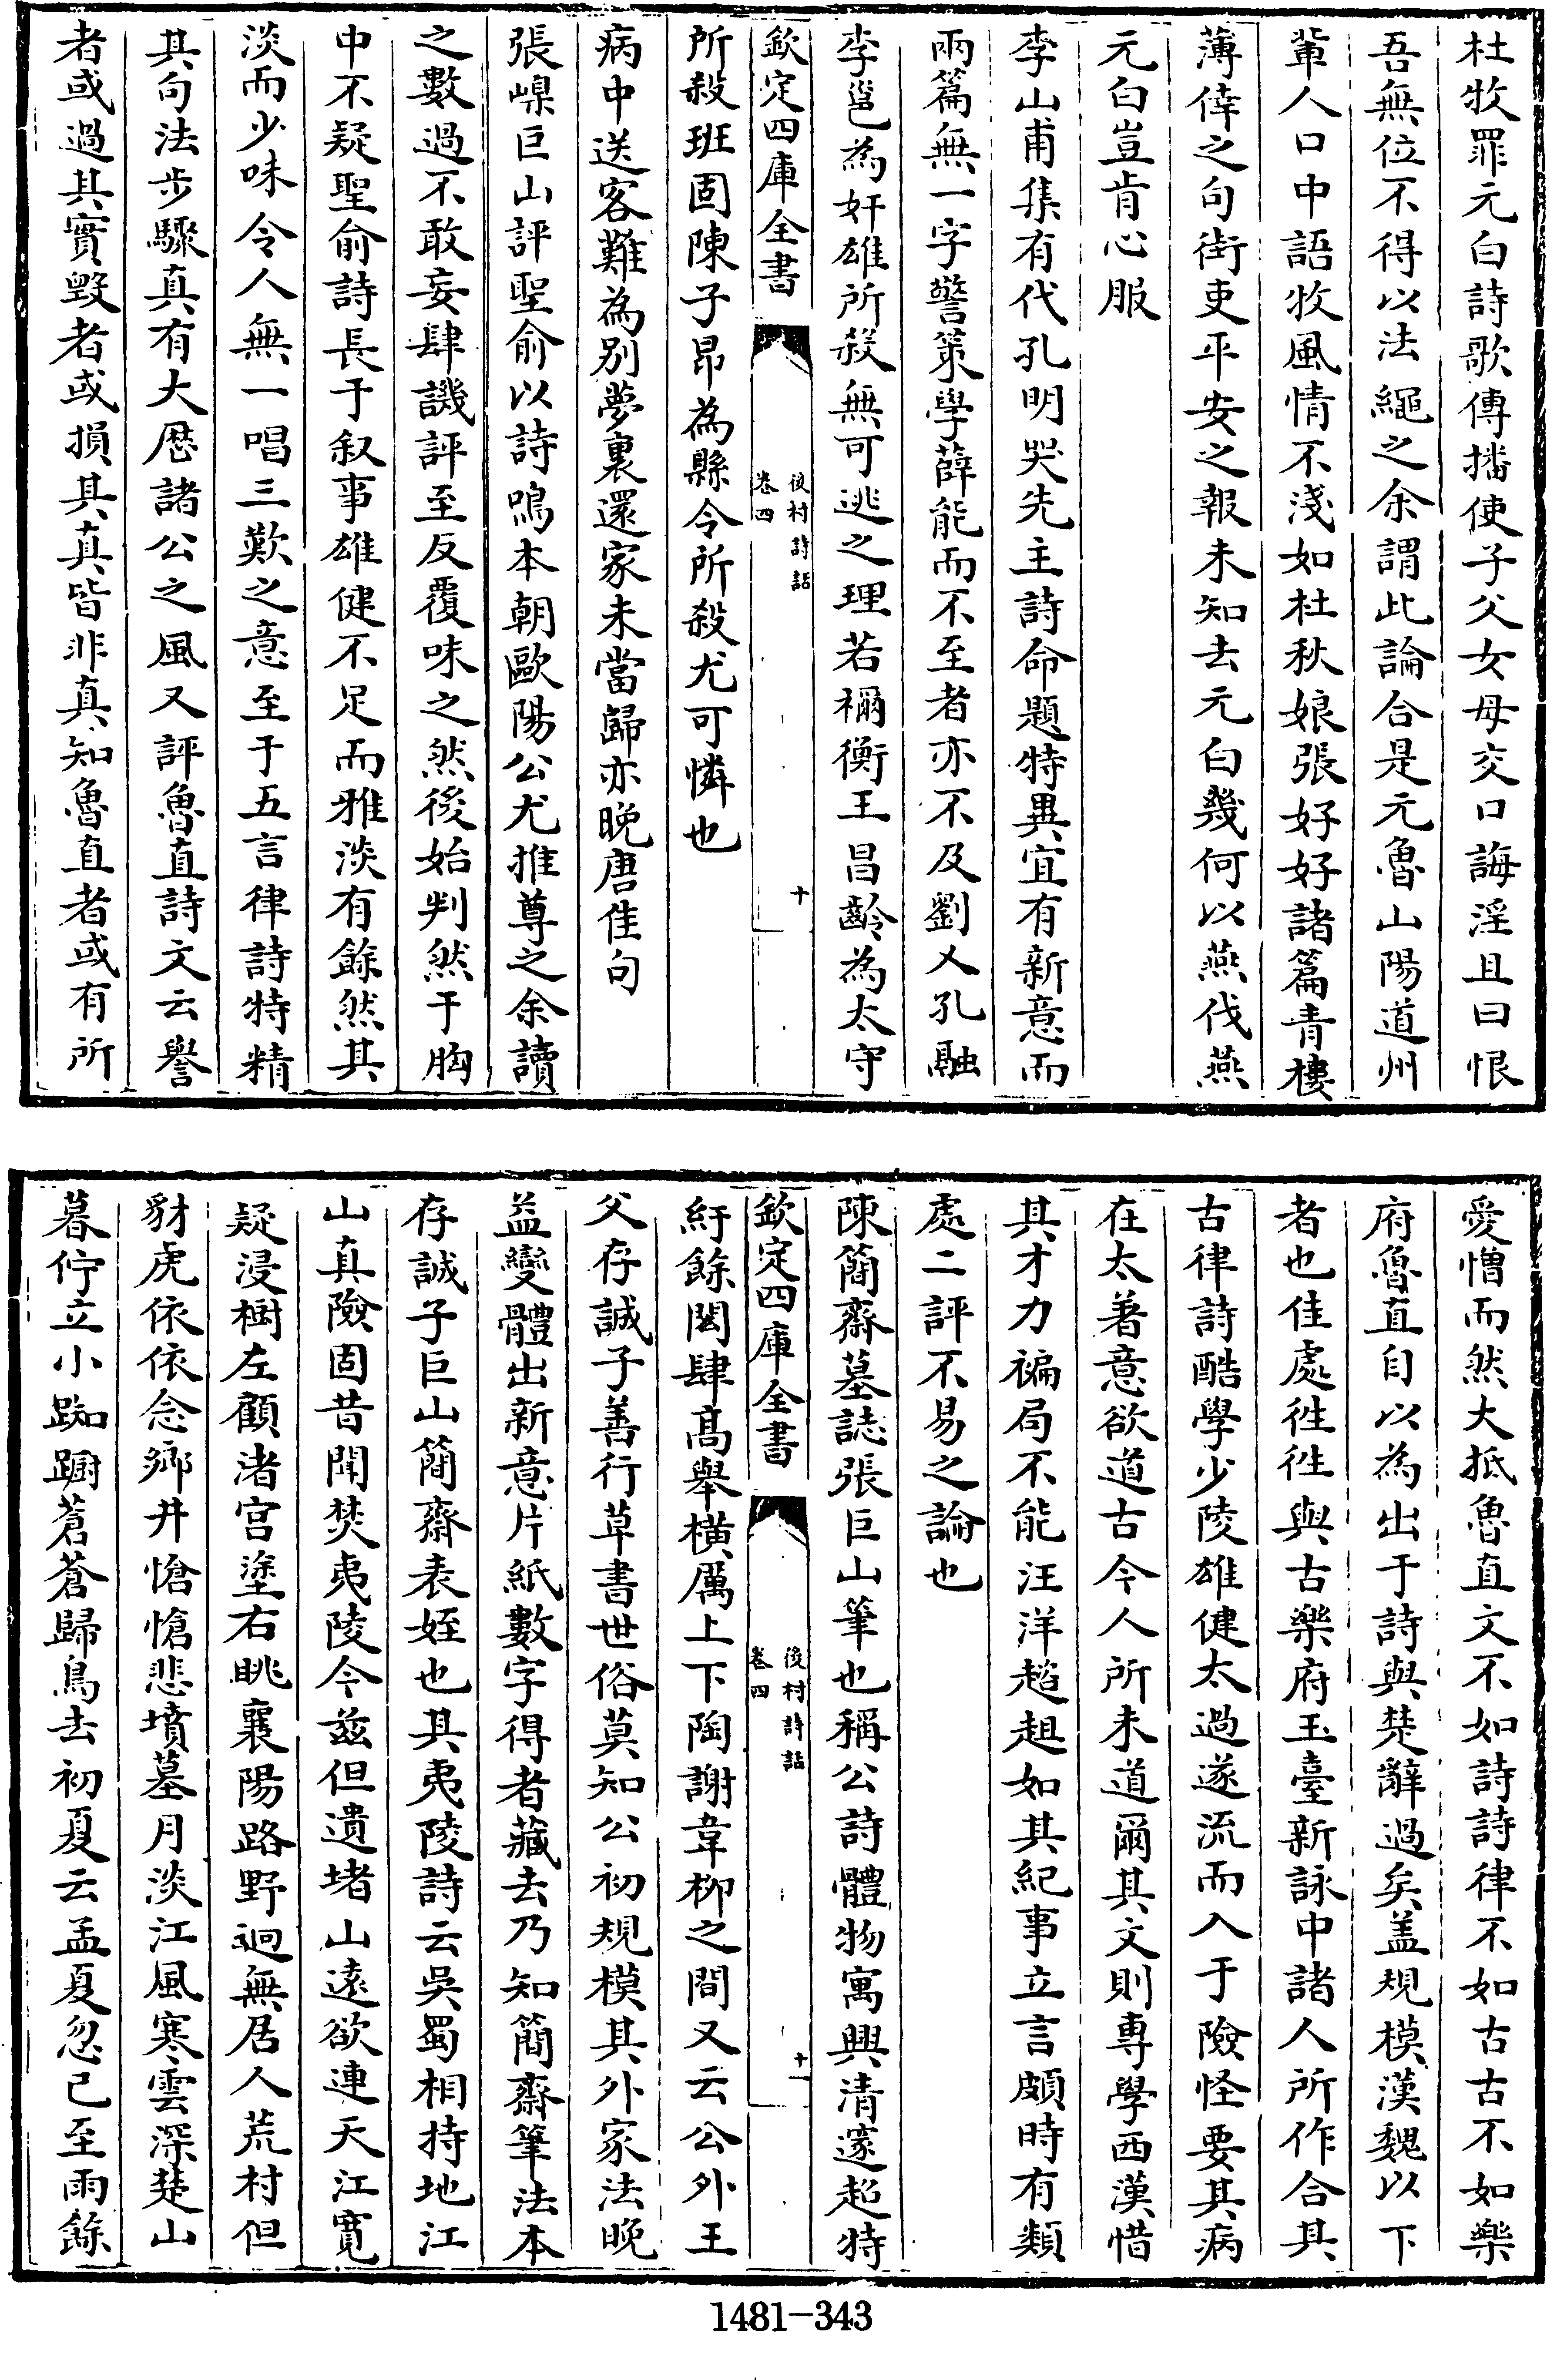 杜牧罪元白詩歌傳播使子父女母交口誨淫且曰恨
吾無位不得以法繩之余謂此論合是元魯山陽道州
輩人口中語牧風情不淺如杜秋娘張好好諸篇青樓
薄倖之句街吏平安之報未知去元白幾何以燕伐燕
元白豈肯心服
李山甫集有代孔明哭先主詩命題特異宜有新意而
兩篇無一字警策學薛能而不至者亦不及劉乂孔融
李邕為奸雄所殺無可逃之理若禰衡王昌齡為太守
欽定四庫全書
後村詩話
卷四
十
所殺班固陳子昂為縣令所殺尤可憐也
病中送客難為別夢裏還家未當歸亦晚唐佳句
張嵲巨山評聖俞以詩鳴本朝歐陽公尤推尊之余讀
之數過不敢妄肆譏評至反覆味之然後始判然于胸
中不疑聖俞詩長于叙事雄健不足而雅淡有餘然其
淡而少味令人無一唱三歎之意至于五言律詩特精
其句法步驟真有大厯諸公之風又評魯直詩文云譽
者或過其實毀者或損其真皆非真知魯直者或有所
愛憎而然大抵魯直文不如詩詩律不如古古不如樂
府魯直自以為出于詩與楚辭過矣盖規模漢魏以下
者也佳處徃徃與古樂府玉臺新詠中諸人所作合其
古律詩酷學少陵雄健太過遂流而入于險怪要其病
在太著意欲道古今人所未道爾其文則専學西漢惜
其才力褊局不能汪洋趨趄如其紀事立言頗時有類
處二評不易之論也
陳簡齋墓誌張巨山筆也稱公詩體物寓興清邃超特
欽定四庫全書
後村詩話
卷四
十一
紆餘閎肆高舉橫厲上下陶謝韋柳之間又云公外王
父存誠子善行草書世俗莫知公初規模其外家法晚
益變體出新意片紙數字得者藏去乃知簡齋筆法本
存誠子巨山簡齋表姪也其夷陵詩云吳蜀相持地江
山真險固昔聞焚夷陵今兹但遺堵山遠欲連天江寛
疑浸樹左顧渚宮塗右眺襄陽路野迥無居人荒村但
豺虎依依念鄉井愴愴悲墳墓月淡江風寒雲深楚山
暮佇立小踟蹰蒼蒼歸鳥去初夏云孟夏忽已至雨餘
1481-343